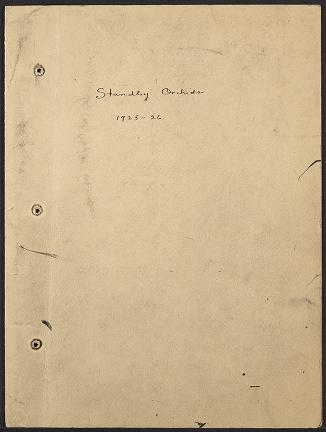 Standley Orchids
1925-26.